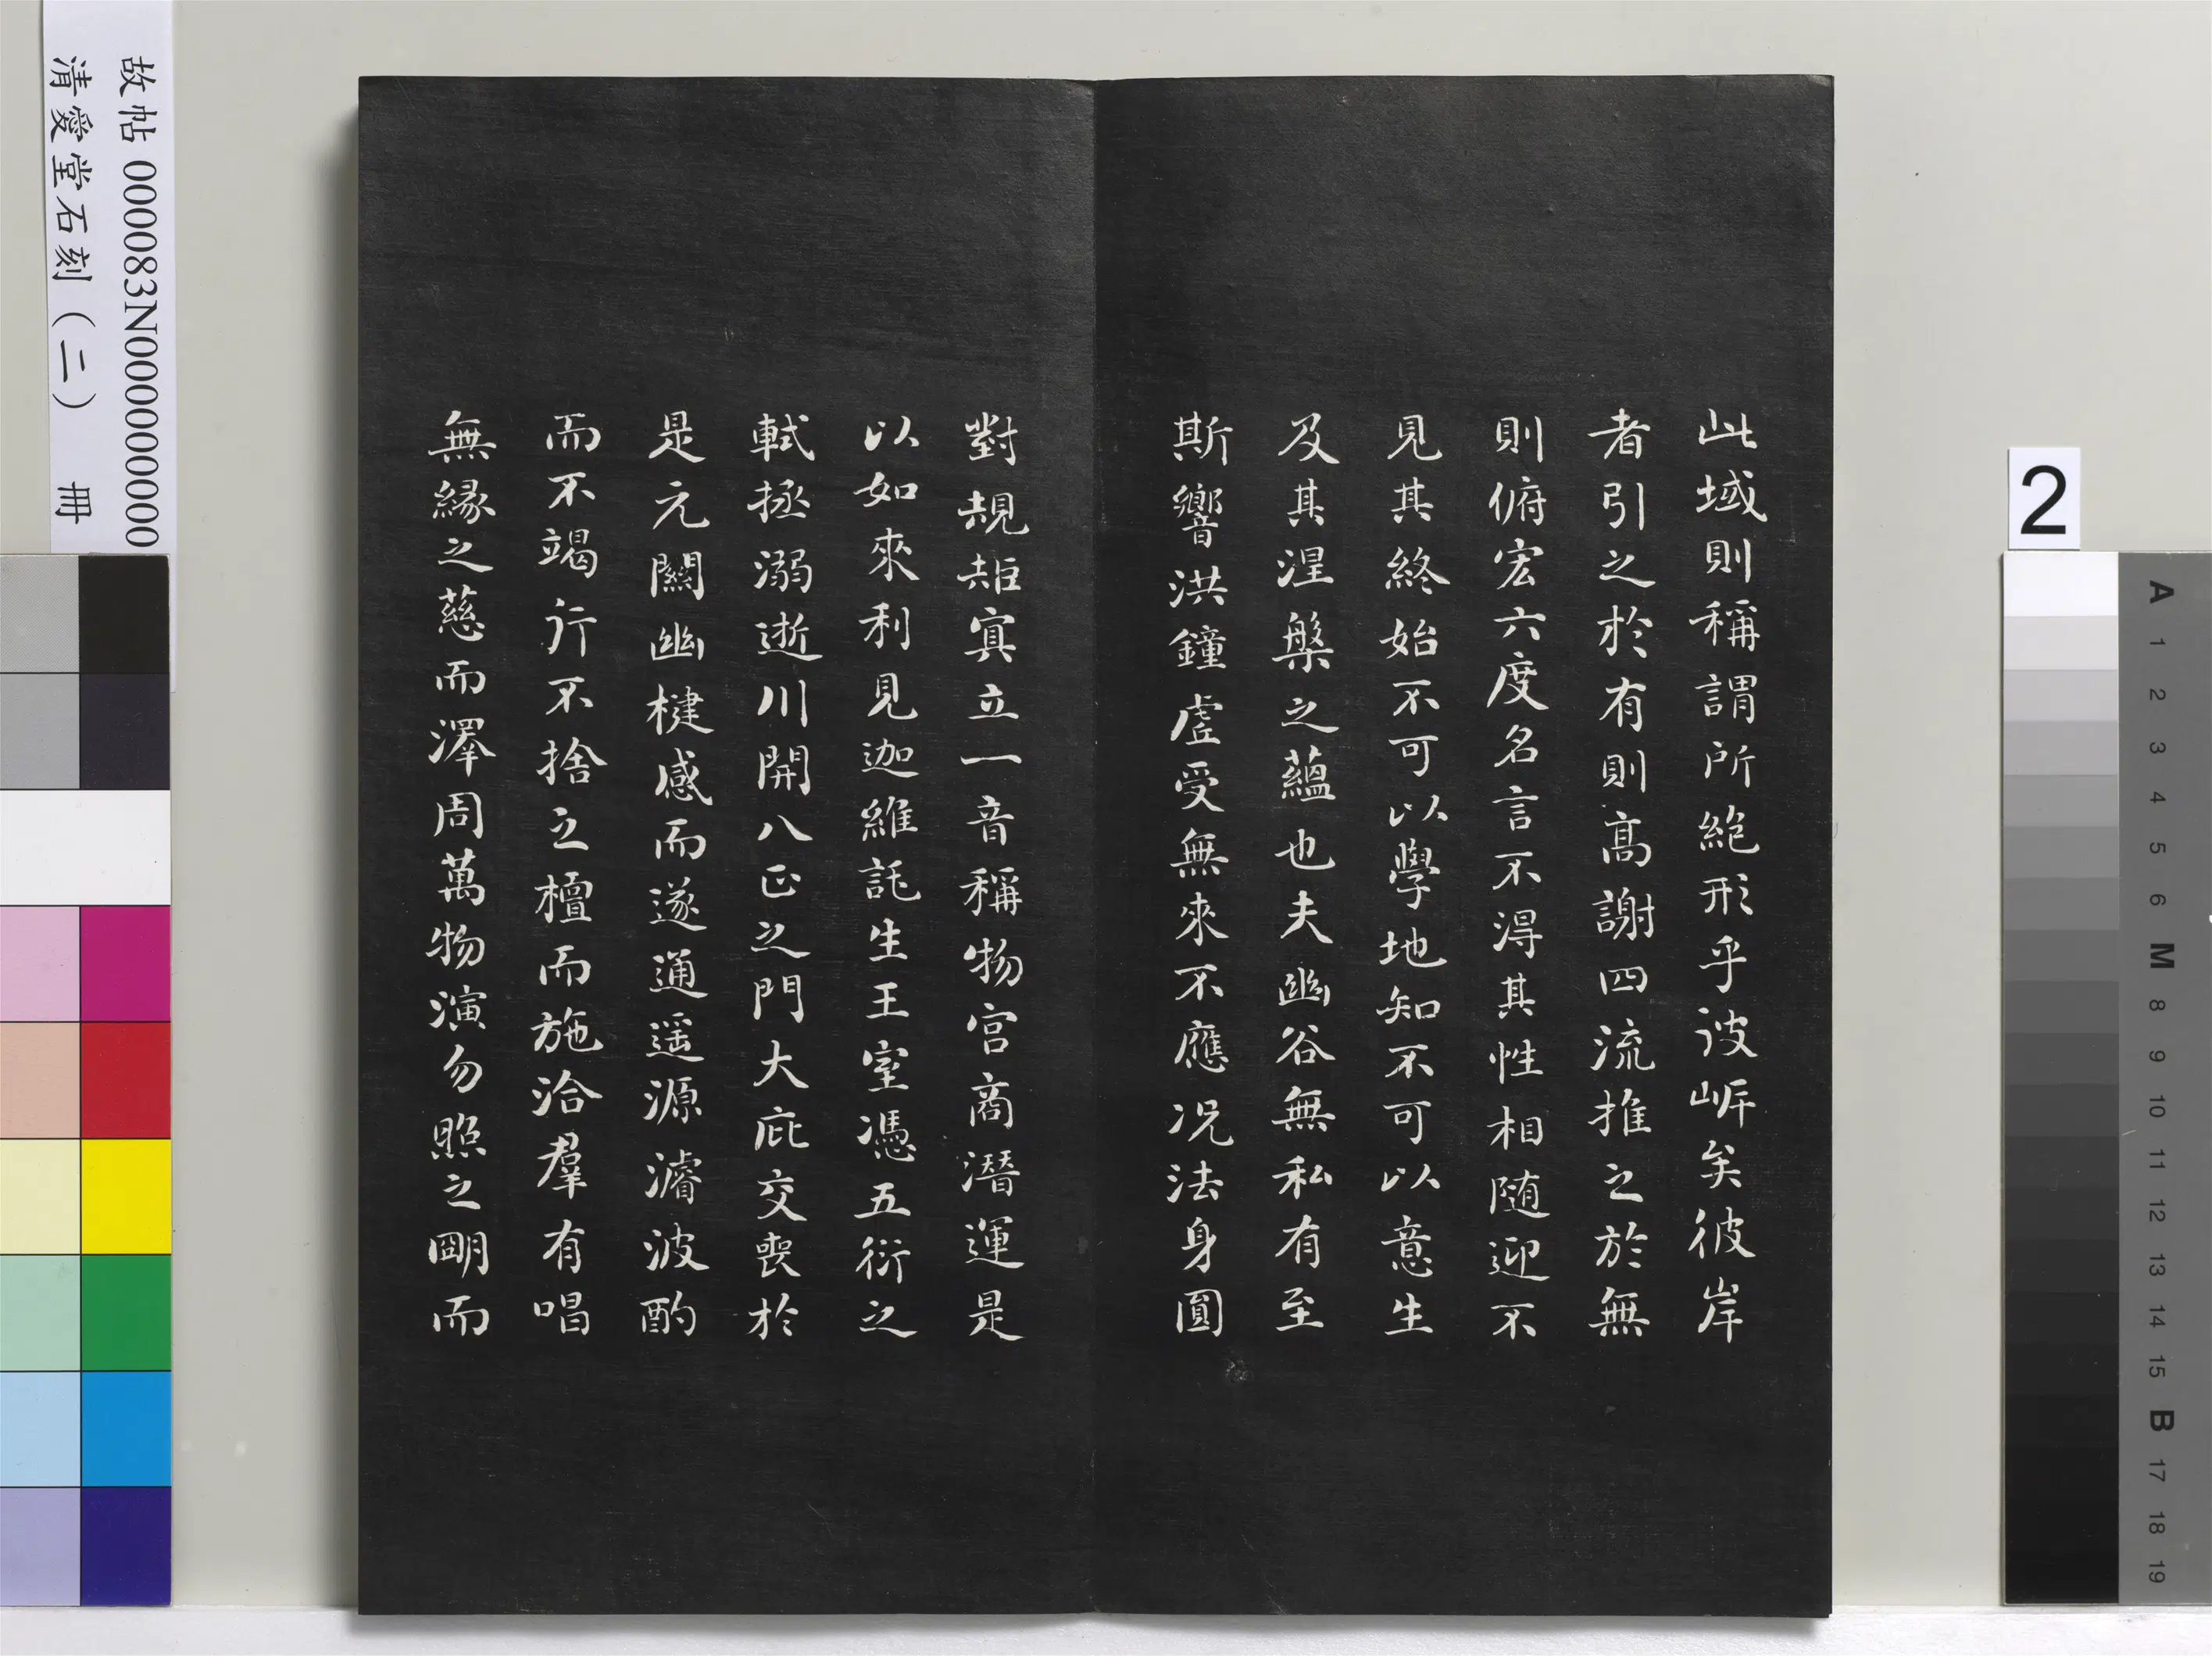 此域則稱謂所絕形乎詖㟁矣彼岸
者引之於有則高謝四流推之於無
則俯宏六度名言不得其性相随迎不
見其終始不可以學地知不可以意生
及其涅槃之蘊也夫幽谷無私有至
斯響洪鐘虛受無來不應况法身圓
對䂓矩寘立一音稱物宮商潛運是
以如來利見迦維託生王室憑五衍之
軾拯溺逝川開八正之門大庇交喪於
是元關幽楗感而遂通遥源濬波酌
而不竭行不捨之檀而施洽羣有唱
無緣之慈而澤周萬物演勿照之朙而
故帖 000083N000000000
清愛堂石刻(二) 冊
2
A
1
2
3
4
5
6
M
8
9
10
11
12
13
14
15
B
17
18
19